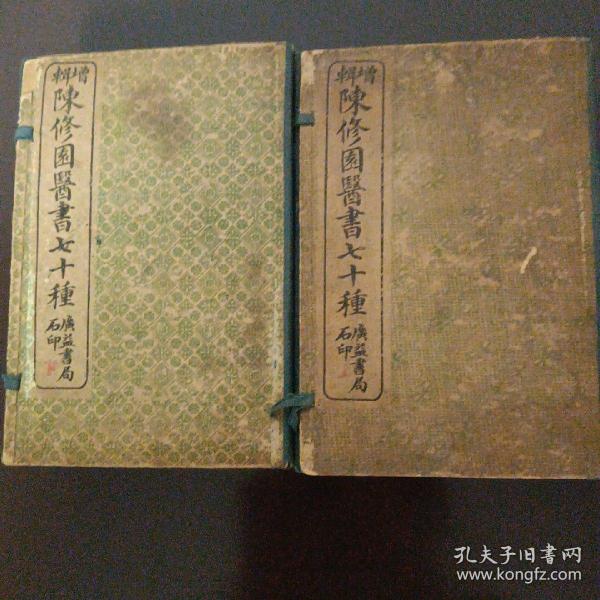 增輯
陳修園醫書七十種
廣益書局
石印
下
增輯
陳修園醫書七十種
廣益書局
石印
上
孔夫子旧书网
www.kongfz.com